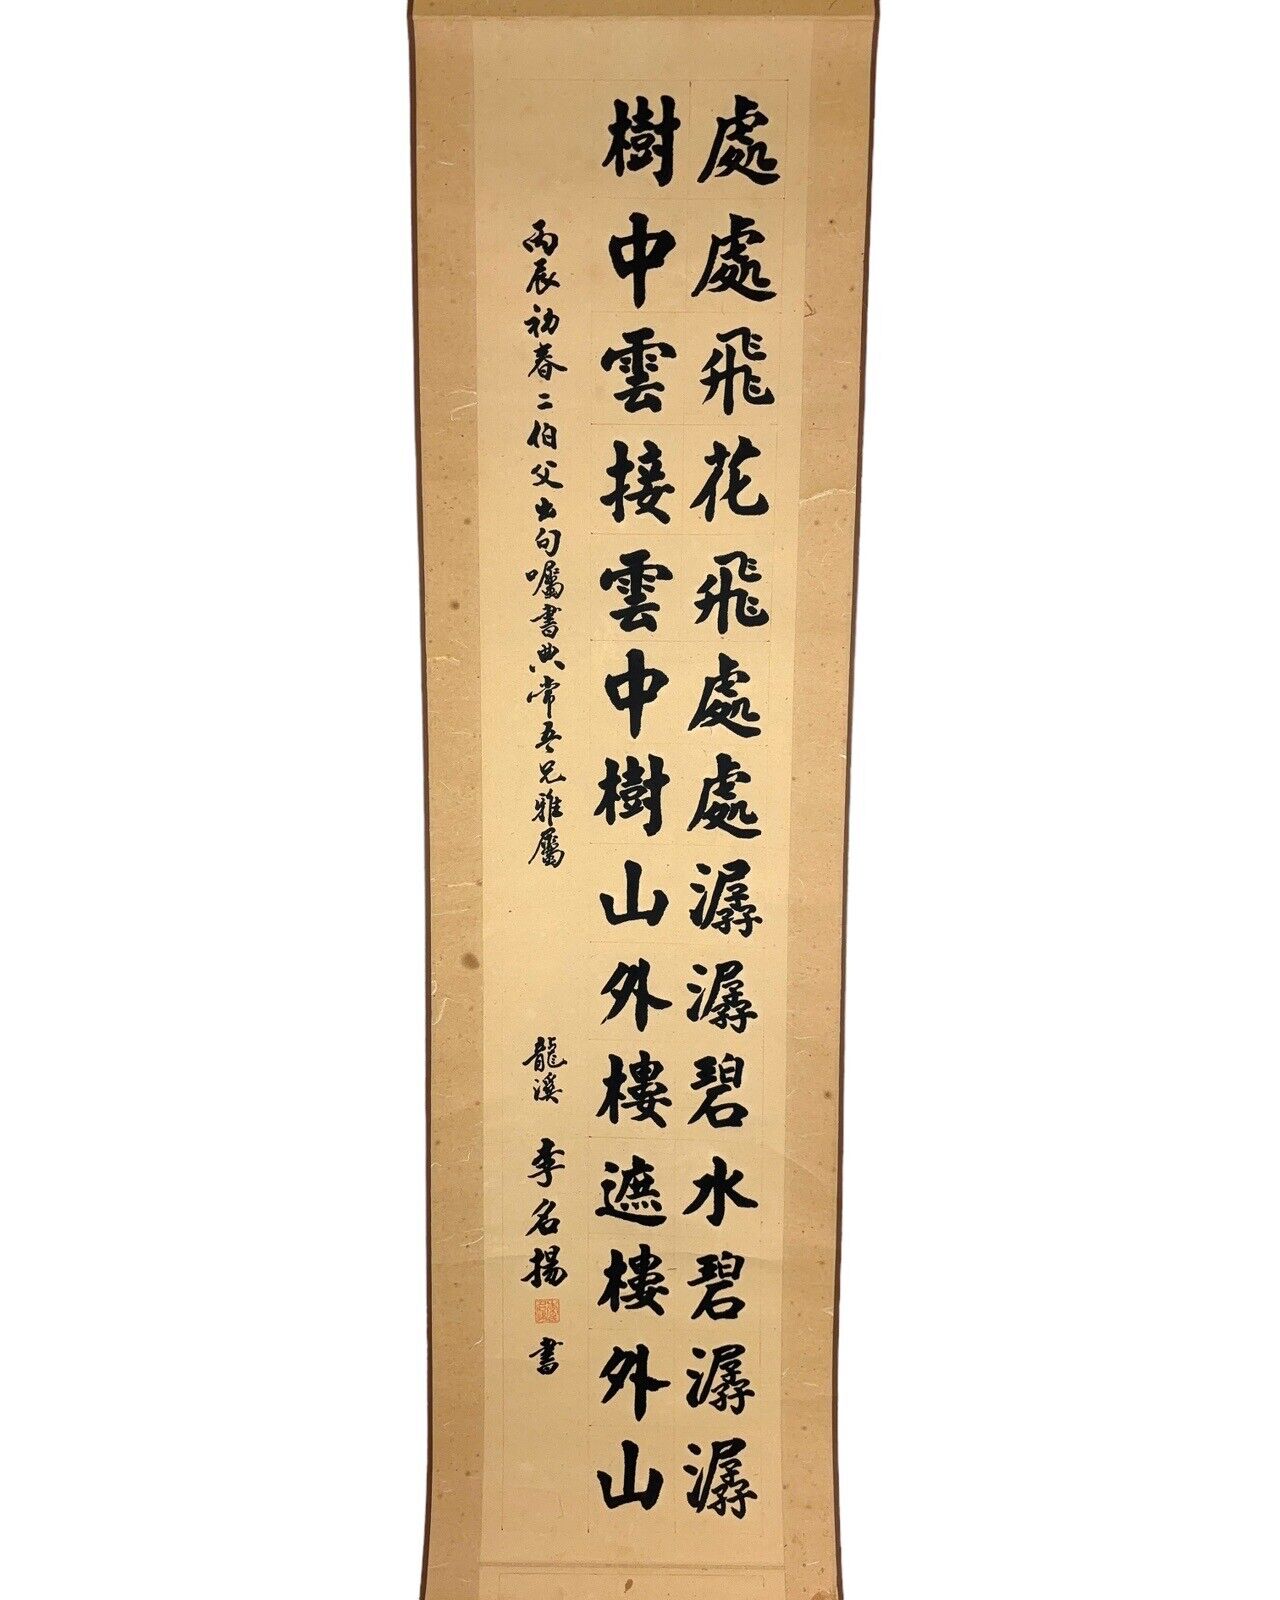 處處飛花飛處處潺潺碧水碧潺潺
樹中雲接雲中樹山外樓遮樓外山
丙辰初春二伯父出句囑書典常吾兄雅屬
龍溪 李名揚 書